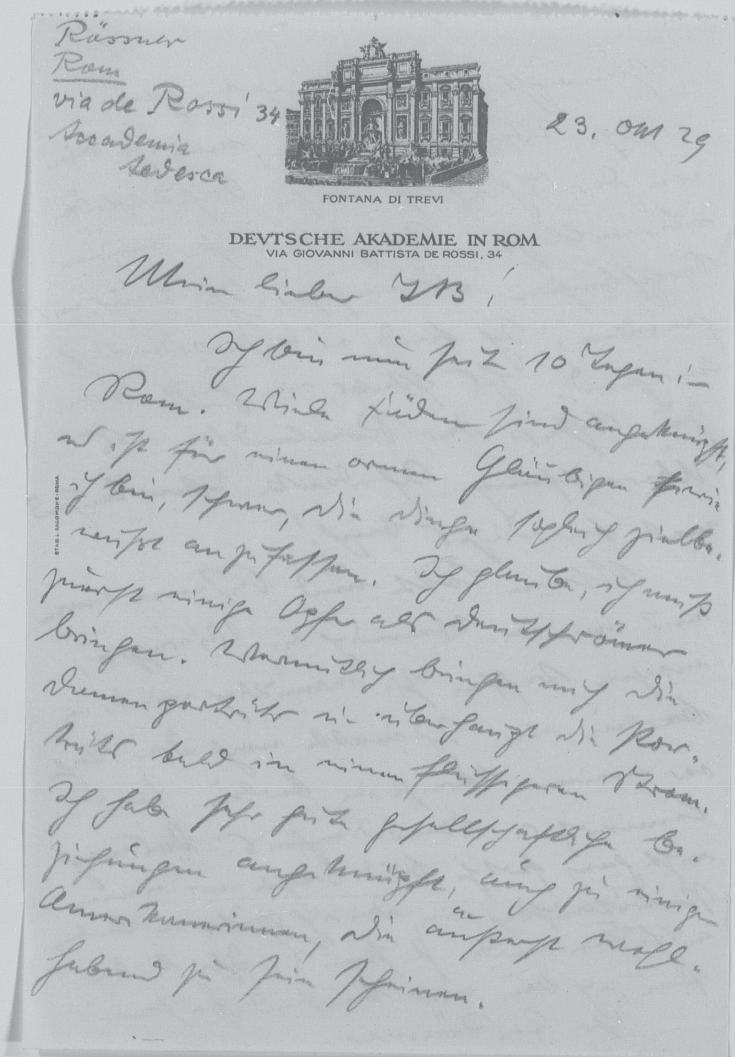 Rössner
Rom
via de Rossi 34
Accademia
tedesca
23. Okt 29
FONTANA DI TREVI
DEVTSCHE AKADEMIE IN ROM
VIA GIOVANNI BATTISTA DE ROSSI, 34
Mein lieber
Ich bin nun seit 10 Tagen in
Rom. Viele Fäden sind angeknüpft,
es ist für einen armen Gläubigen wie
ich bin, schwer, die Dinge sogleich zielbe-
wußt anzufassen. Ich glaube, ich muß
zuerst einige Opfer als Deutschrömer
bringen. Vermutlich bringen mich die
Damenporträts u. überhaupt die Por-
träts bald in einen flüssigeren Strom.
Ich habe sehr gute gesellschaftliche Be-
ziehungen angeknüpft, auch zu einigen
Amerikanerinnen, die äußerst wohl-
habend zu sein scheinen.